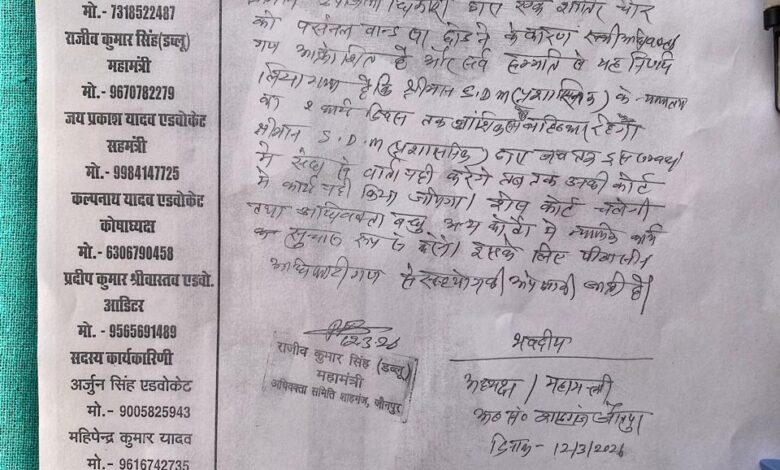 मो.- 7318522487
राजीव कुमार सिंह(डब्लू)
महामंत्री
मो.- 9670782279
जय प्रकाश यादव एडवोकेट
सहमंत्री
मो.- 9984147725
कल्पनाथ यादव एडवोकेट
कोषाध्यक्ष
मो.- 6306790458
प्रदीप कुमार श्रीवास्तव एडवो.
आडिटर
मो.- 9565691489
सदस्य कार्यकारिणी
अर्जुन सिंह एडवोकेट
मो.- 9005825943
महिपेन्द्र कुमार यादव
मो.- 9616742735
को पर्सनल वान्ड पर छोड़ने के कारण सभी अधिवक्ता
गण आक्रोशित है और सर्व सम्मति से यह निर्णय
लिया गया है कि श्रीमान S.D.M (प्रशासनिक) के
का 2 कार्य दिवस तक बहिष्कार रहेगा
श्रीमान S.D.M (प्रशासनिक) द्वारा जब तक इस सम्बन्ध
में वार्ता नही करेगे तब तक उनकी कोर्ट
मे कार्य नही किया जायेगा। शेष कोर्ट चलेगी
तथा अधिवक्ता बन्धु अन्य कोर्टो मे न्यायिक कार्य
का सुचारु रूप से करेगे। इसके लिए पीठासीन
अधिकारीगण से सहयोग की अपेक्षा की जाती है।
12-3-26
राजीव कुमार सिंह (डब्लू)
महामंत्री
अधिवक्ता समिति शाहगंज, जौनपुर
भवदीय
अध्यक्ष / महामंत्री
अ० स० शाहगंज जौनपुर
दिनांक - 12/3/2026